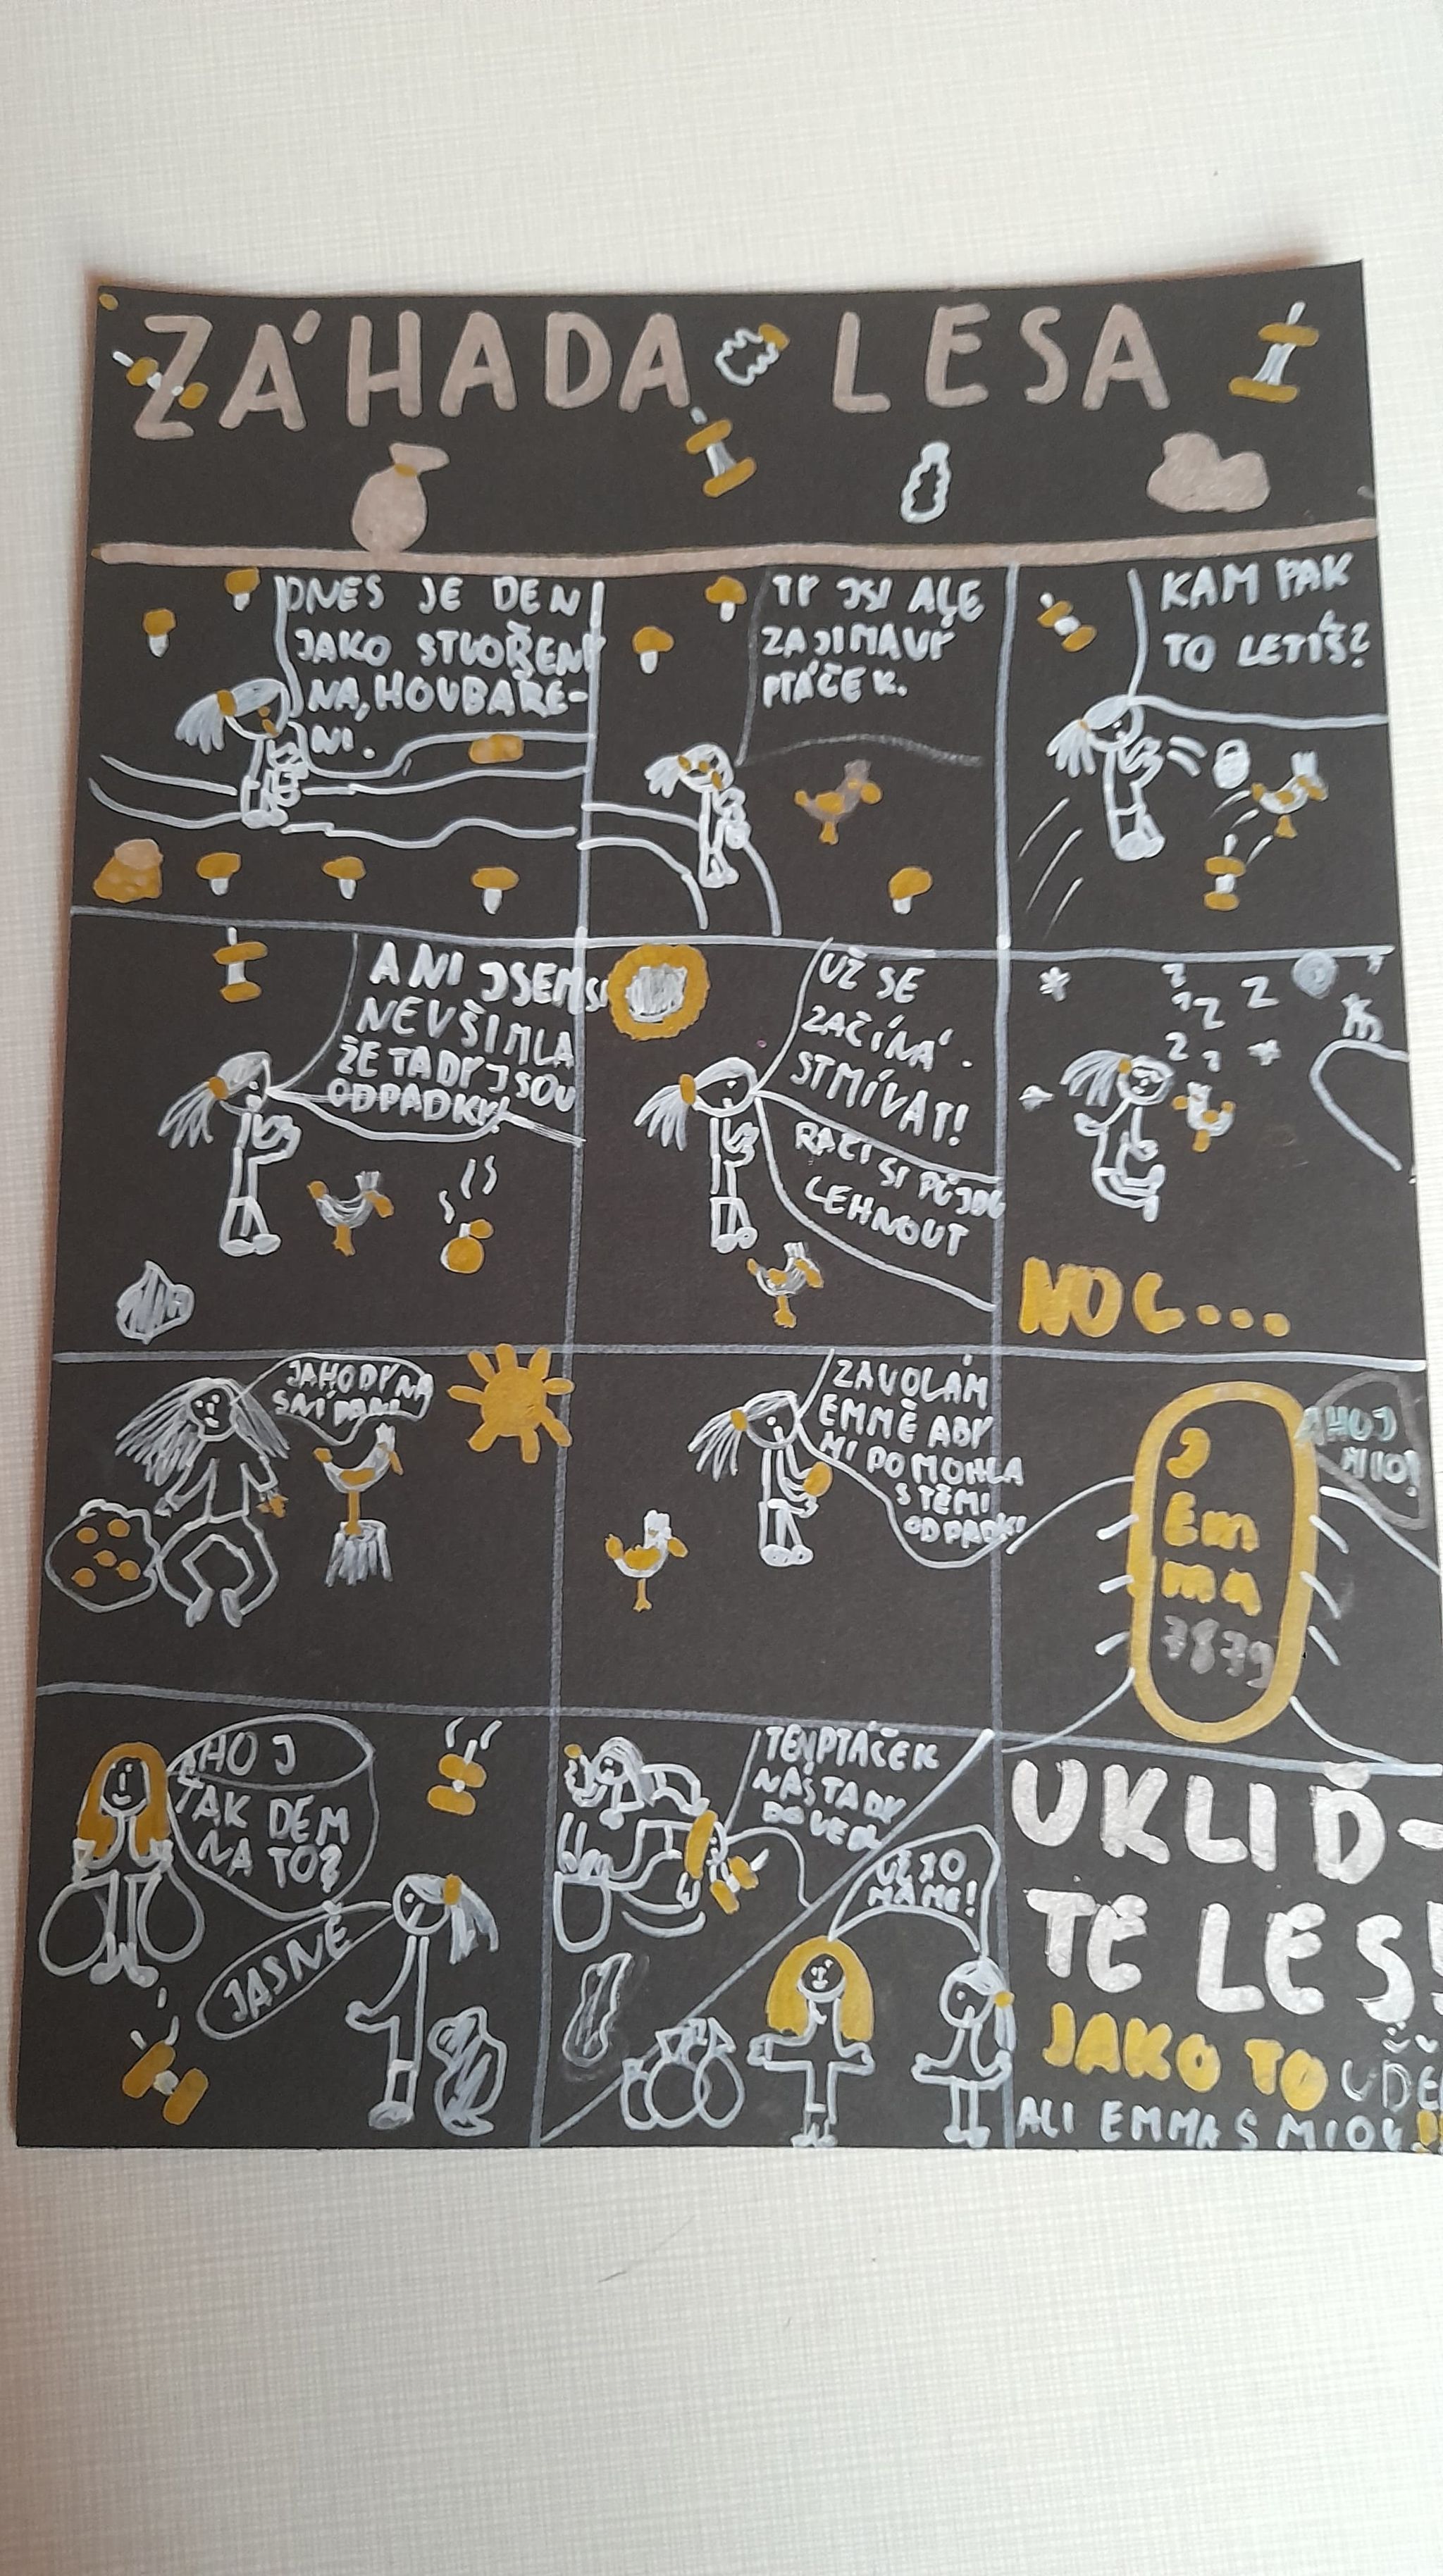 ZÁHADA LESA
DNES JE DEN
JAKO STVOŘENÝ
NA, HOUBAŘE-
NI.
TY JSI ALE
ZAJIMAVÝ
PTÁČEK.
KAM PAK
TO LETÍŠ?
ANI JSEM SI
NEVŠIMLA
ŽE TADY JSOU
ODPADKY!
UŽ SE
ZAČÍNÁ
STMÍVAT!
RAČI SI PŮJDU
LEHNOUT
NOC...
JAHODY NA
SNÍDANI
ZAVOLÁM
EMMĚ ABY
MI POMOHLA
S TĚMI
ODPADKY
AHOJ
MIO!
J
EM
MA
7879
AHOJ
TAK DEM
NA TO?
JASNĚ
TEN PTÁČEK
NÁS TADY
DOVEDL
UŽ TO
MÁME!
UKLIĎ-
TE LES!
JAKO TO UDĚ
ALI EMMA S MIOU!